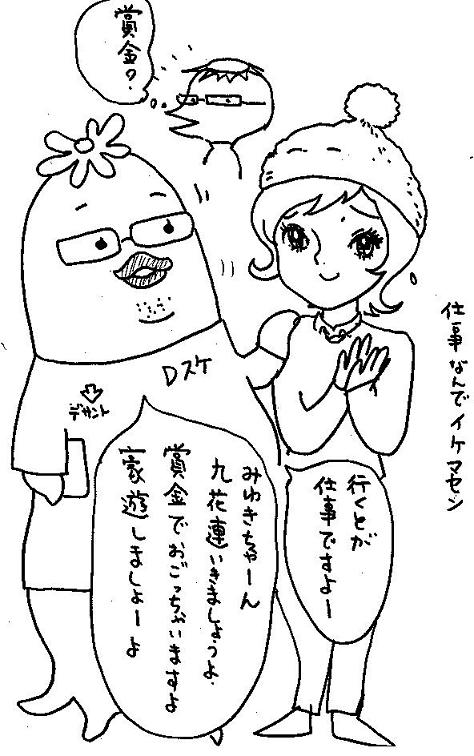 賞金?
仕事なんでイケマセン
Dスケ
デサント
行くとが
仕事ですよー
みゆきちゃーん
九花連いきましょうよ
賞金でおごっちゃいますよ
豪遊しましょーよ